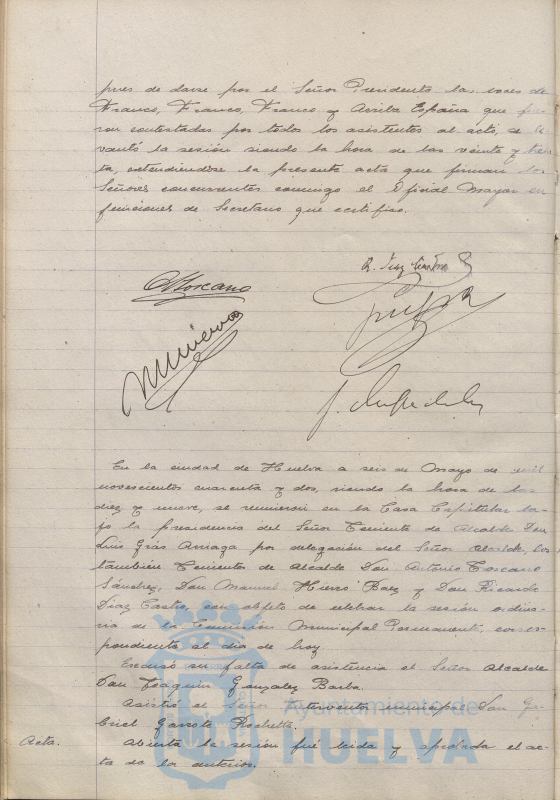 pues de darse por el Señor Presidente las voces de
Franco, Franco, Franco y Arriba España que fue-
ron contestadas por todos los asistentes al acto, se le-
vantó la sesión siendo la hora de las veinte y trein-
ta, extendiéndose la presente acta que firman los
Señores concurrentes conmigo el Oficial Mayor en
funciones de Secretario que certifico.
R. Diaz
A Toscano
En la ciudad de Huelva a seis de Mayo de mil
novecientos cuarenta y dos, siendo la hora de las
diez y nueve, se reunieron en la Casa Capitular ba-
jo la presidencia del Señor Teniente de Alcalde Don
Luis Gras Arriaga por delegación del Señor Alcalde, los
también Tenientes de Alcalde Don Antonio Toscano
Sánchez, Don Manuel Hierro Baez y Don Ricardo
Diaz Castro, con objeto de celebrar la sesión ordina-
ria de la Comisión Municipal Permanente, corres-
pondiente al día de hoy.
Escusó su falta de asistencia el Señor Alcalde
Don Joaquín Gonzalez Barba.
Asistió el Señor Interventor municipal Don Ga-
briel Garrote Rochetta.
Acta. Abierta la sesión fué leída y aprobada el ac-
ta de la anterior.
Ayuntamiento de
HUELVA